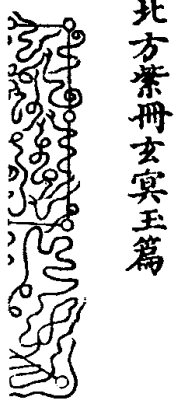 北方紫冊玄冥玉篇